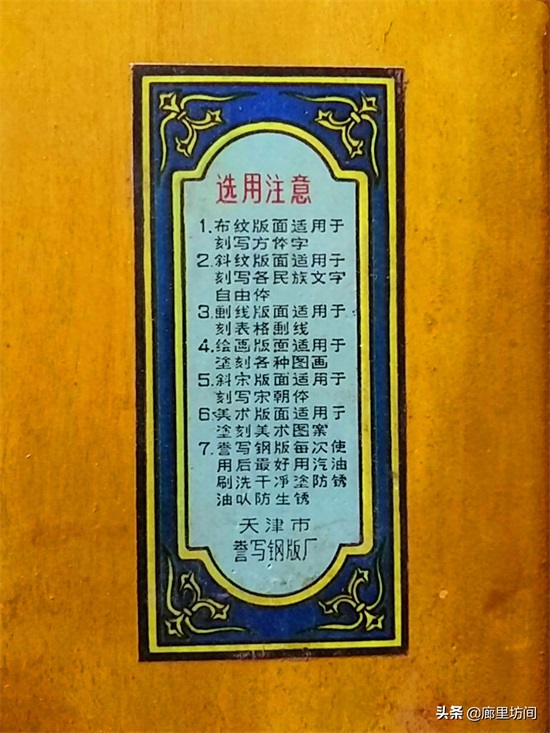 选用注意
1.布纹版面适用于
刻写方体字
2.斜纹版面适用于
刻写各民族文字
自由体
3.劃线版面适用于
刻表格劃线
4.绘画版面适用于
塗刻各种图画
5.斜宋版面适用于
刻写宋朝体
6.美术版面适用于
塗刻美术图案
7.誊写钢版每次使
用后最好用汽油
刷洗干净塗防锈
油以防生锈
天津市
誊写钢版厂
头条 @廊里坊间